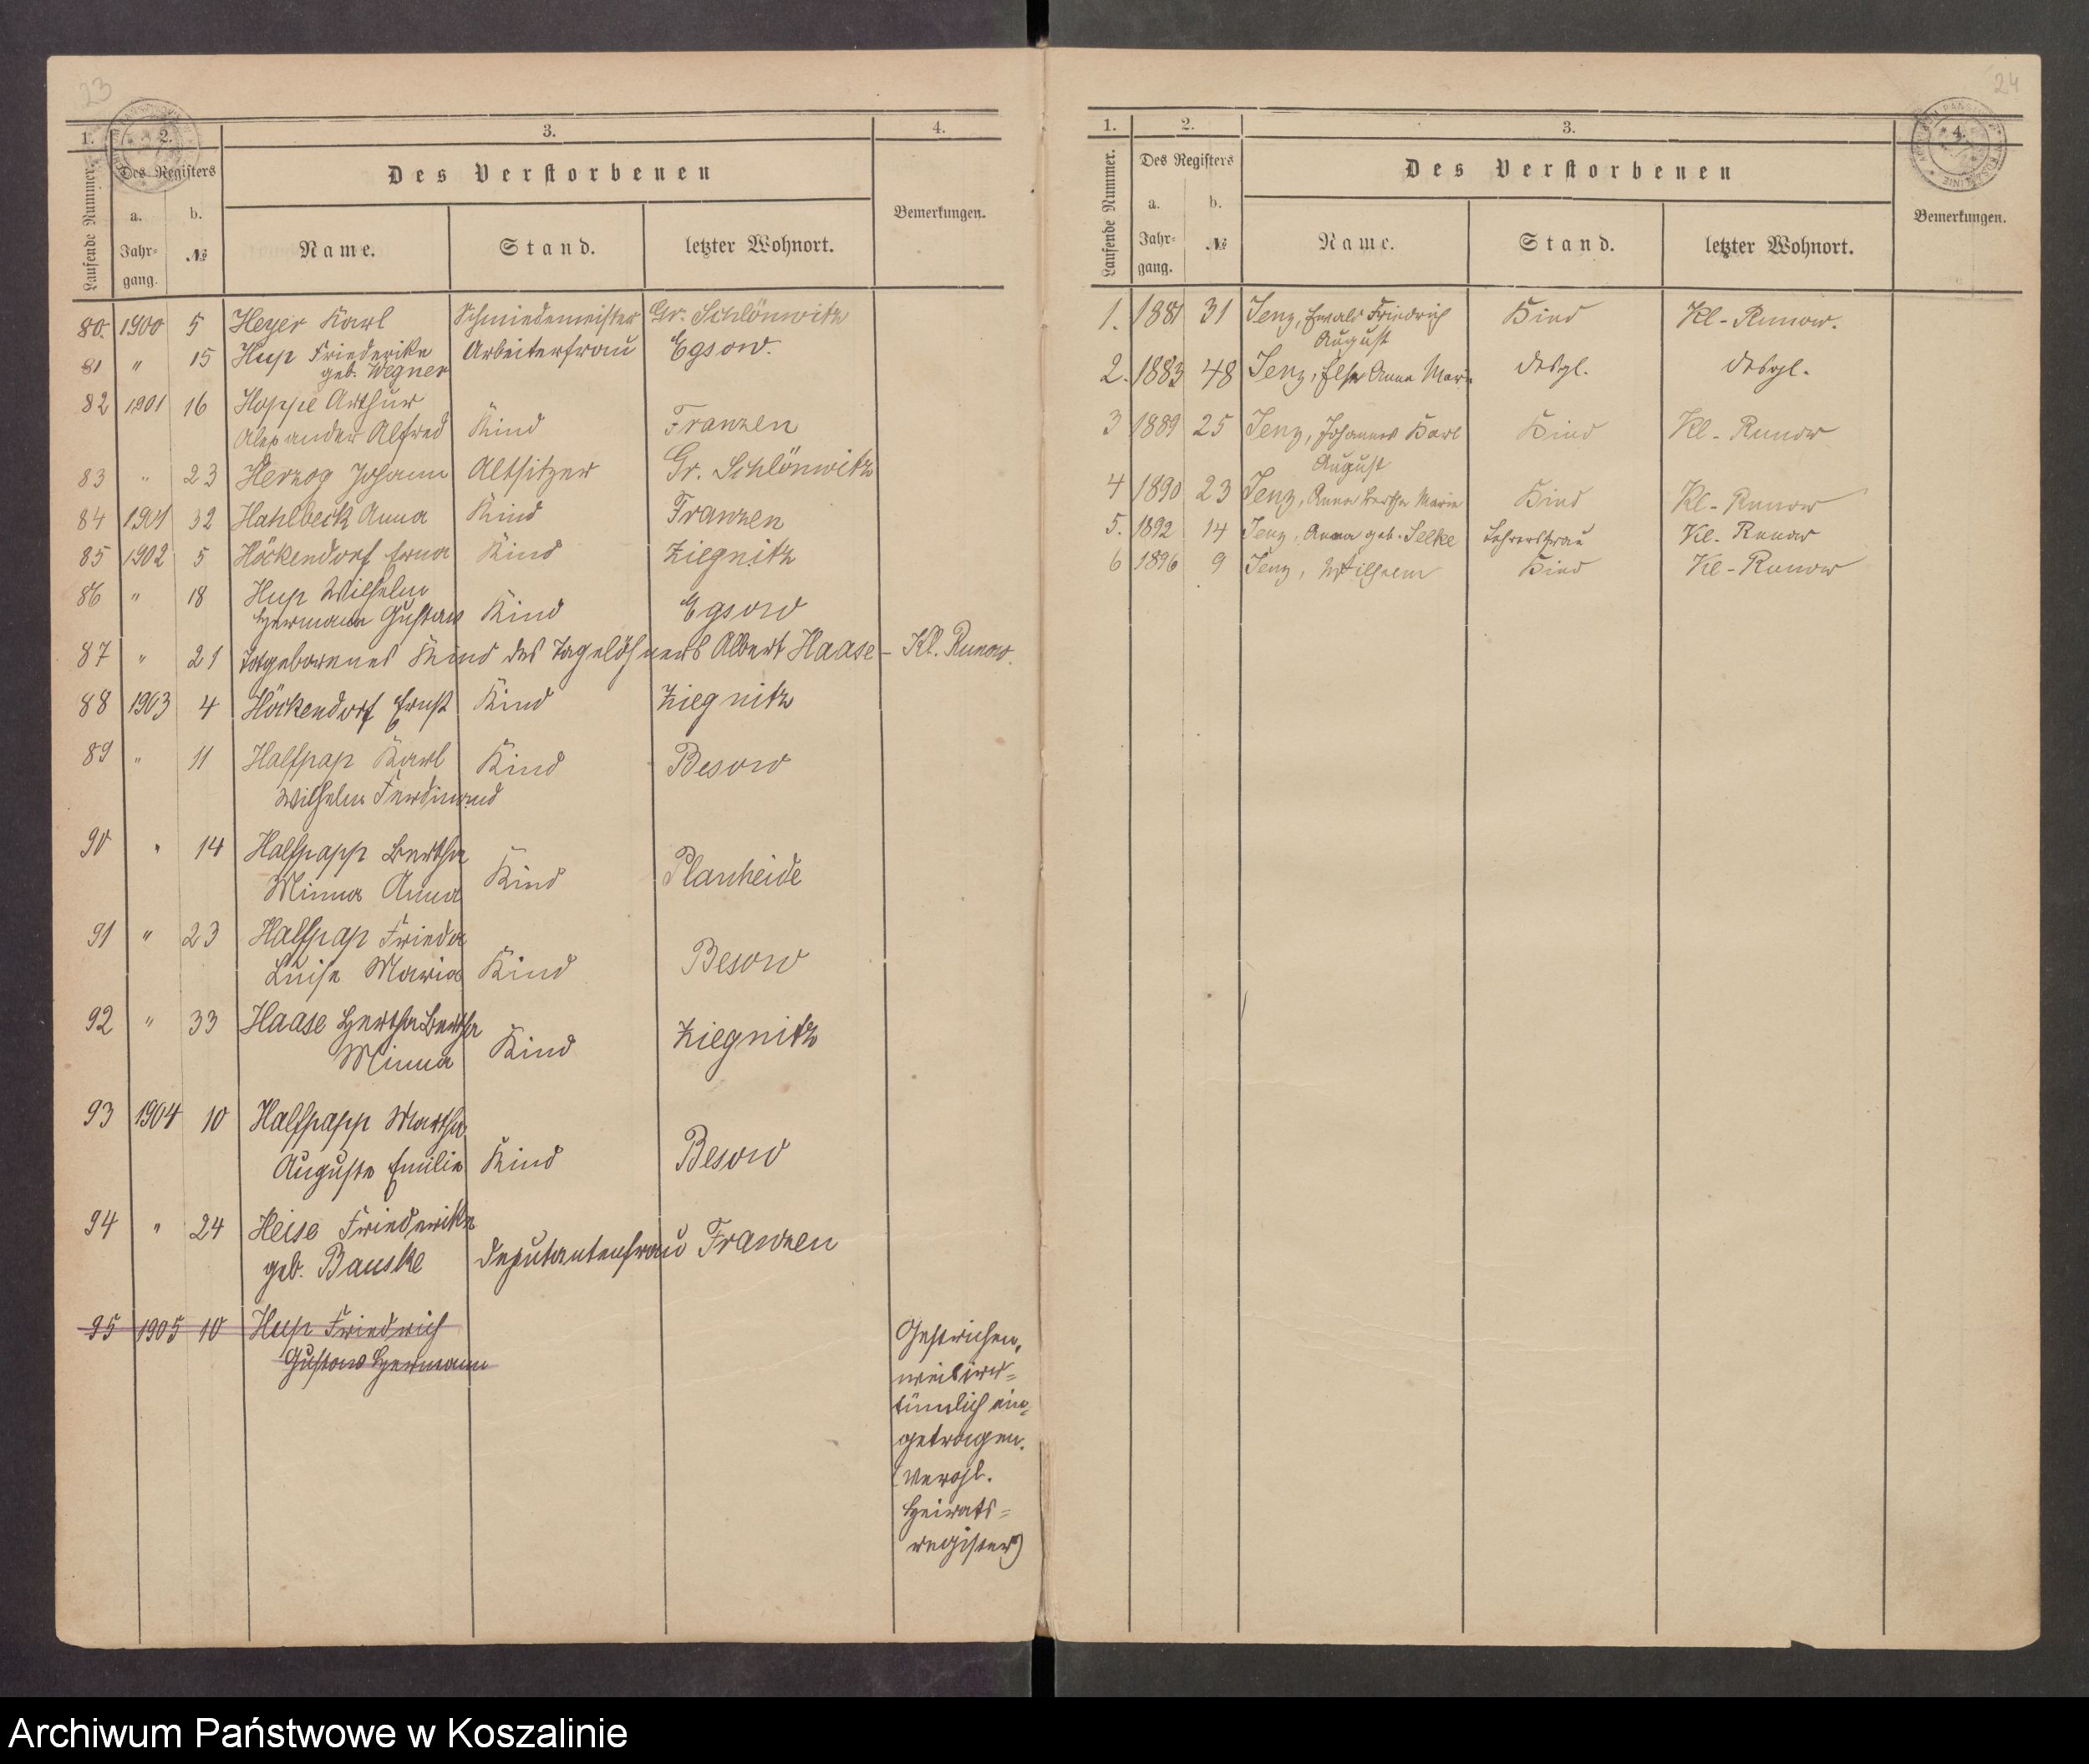 23
1.
2.
3.
4.
Laufende Nummer.
Des Registers
Des Verstorbenen
Bemerkungen.
a.
b.
Jahr-
gang.
№
Name.
Stand.
letzter Wohnort.
80. 1900 5 Heyer Karl Schmiedemeister Gr. Schlönwitz
81 " 15 Hup Friederike Arbeiterfrau Egsow.
geb. Wegner
82 1901 16 Hoppe Arthur
Alexander Alfred Kind Franzen
83 " 23 Herzog Johann Altsitzer Gr. Schlönwitz
84 1901 32 Hahlbeck Anna Kind Franzen
85 1902 5 Höckendorf Erna Kind Ziegnitz
86 " 18 Hup Wilhelm
Hermann Gustav Kind Egsow
87 " 21 Totgeborenes Kind des Tagelöhners Albert Haase - Kl. Runow.
88 1903 4 Höckendorf Ernst Kind Ziegnitz
89 " 11 Halfpap Karl Kind Besow
Wilhelm Ferdinand
90 " 14 Halfpapp Bertha
Minna Anna Kind Planheide
91 " 23 Halfpap Frieda
Luise Maria Kind Besow
92 " 33 Haase Hertha Bertha
Minna Kind Ziegnitz
93 1904 10 Halfpapp Martha
Auguste Emilie Kind Besow
94 " 24 Heise Friederike
geb. Bauske Deputantenfrau Franzen
95 1905 10 Hup Friedrich
Gustav Hermann
Gestrichen,
weil irr-
tümlich ein-
getragen.
(Vergl.
Heirats-
register)
24
1.
2.
3.
4.
Laufende Nummer.
Des Registers
Des Verstorbenen
Bemerkungen.
a.
b.
Jahr-
gang.
№
Name.
Stand.
letzter Wohnort.
1. 1881 31 Jenz, Ewald Friedrich Kind Kl-Runow.
August
2. 1883 48 Jenz, Else Anna Marie desgl. desgl.
3 1889 25 Jenz, Johannes Karl Kind Kl-Runow
August
4 1890 23 Jenz, Anna Bertha Marie Kind Kl-Runow
5. 1892 14 Jenz, Anna geb. Selke Lehrersfrau Kl-Runow
6 1896 9 Jenz, Wilhelm Kind Kl-Runow
Archiwum Państwowe w Koszalinie